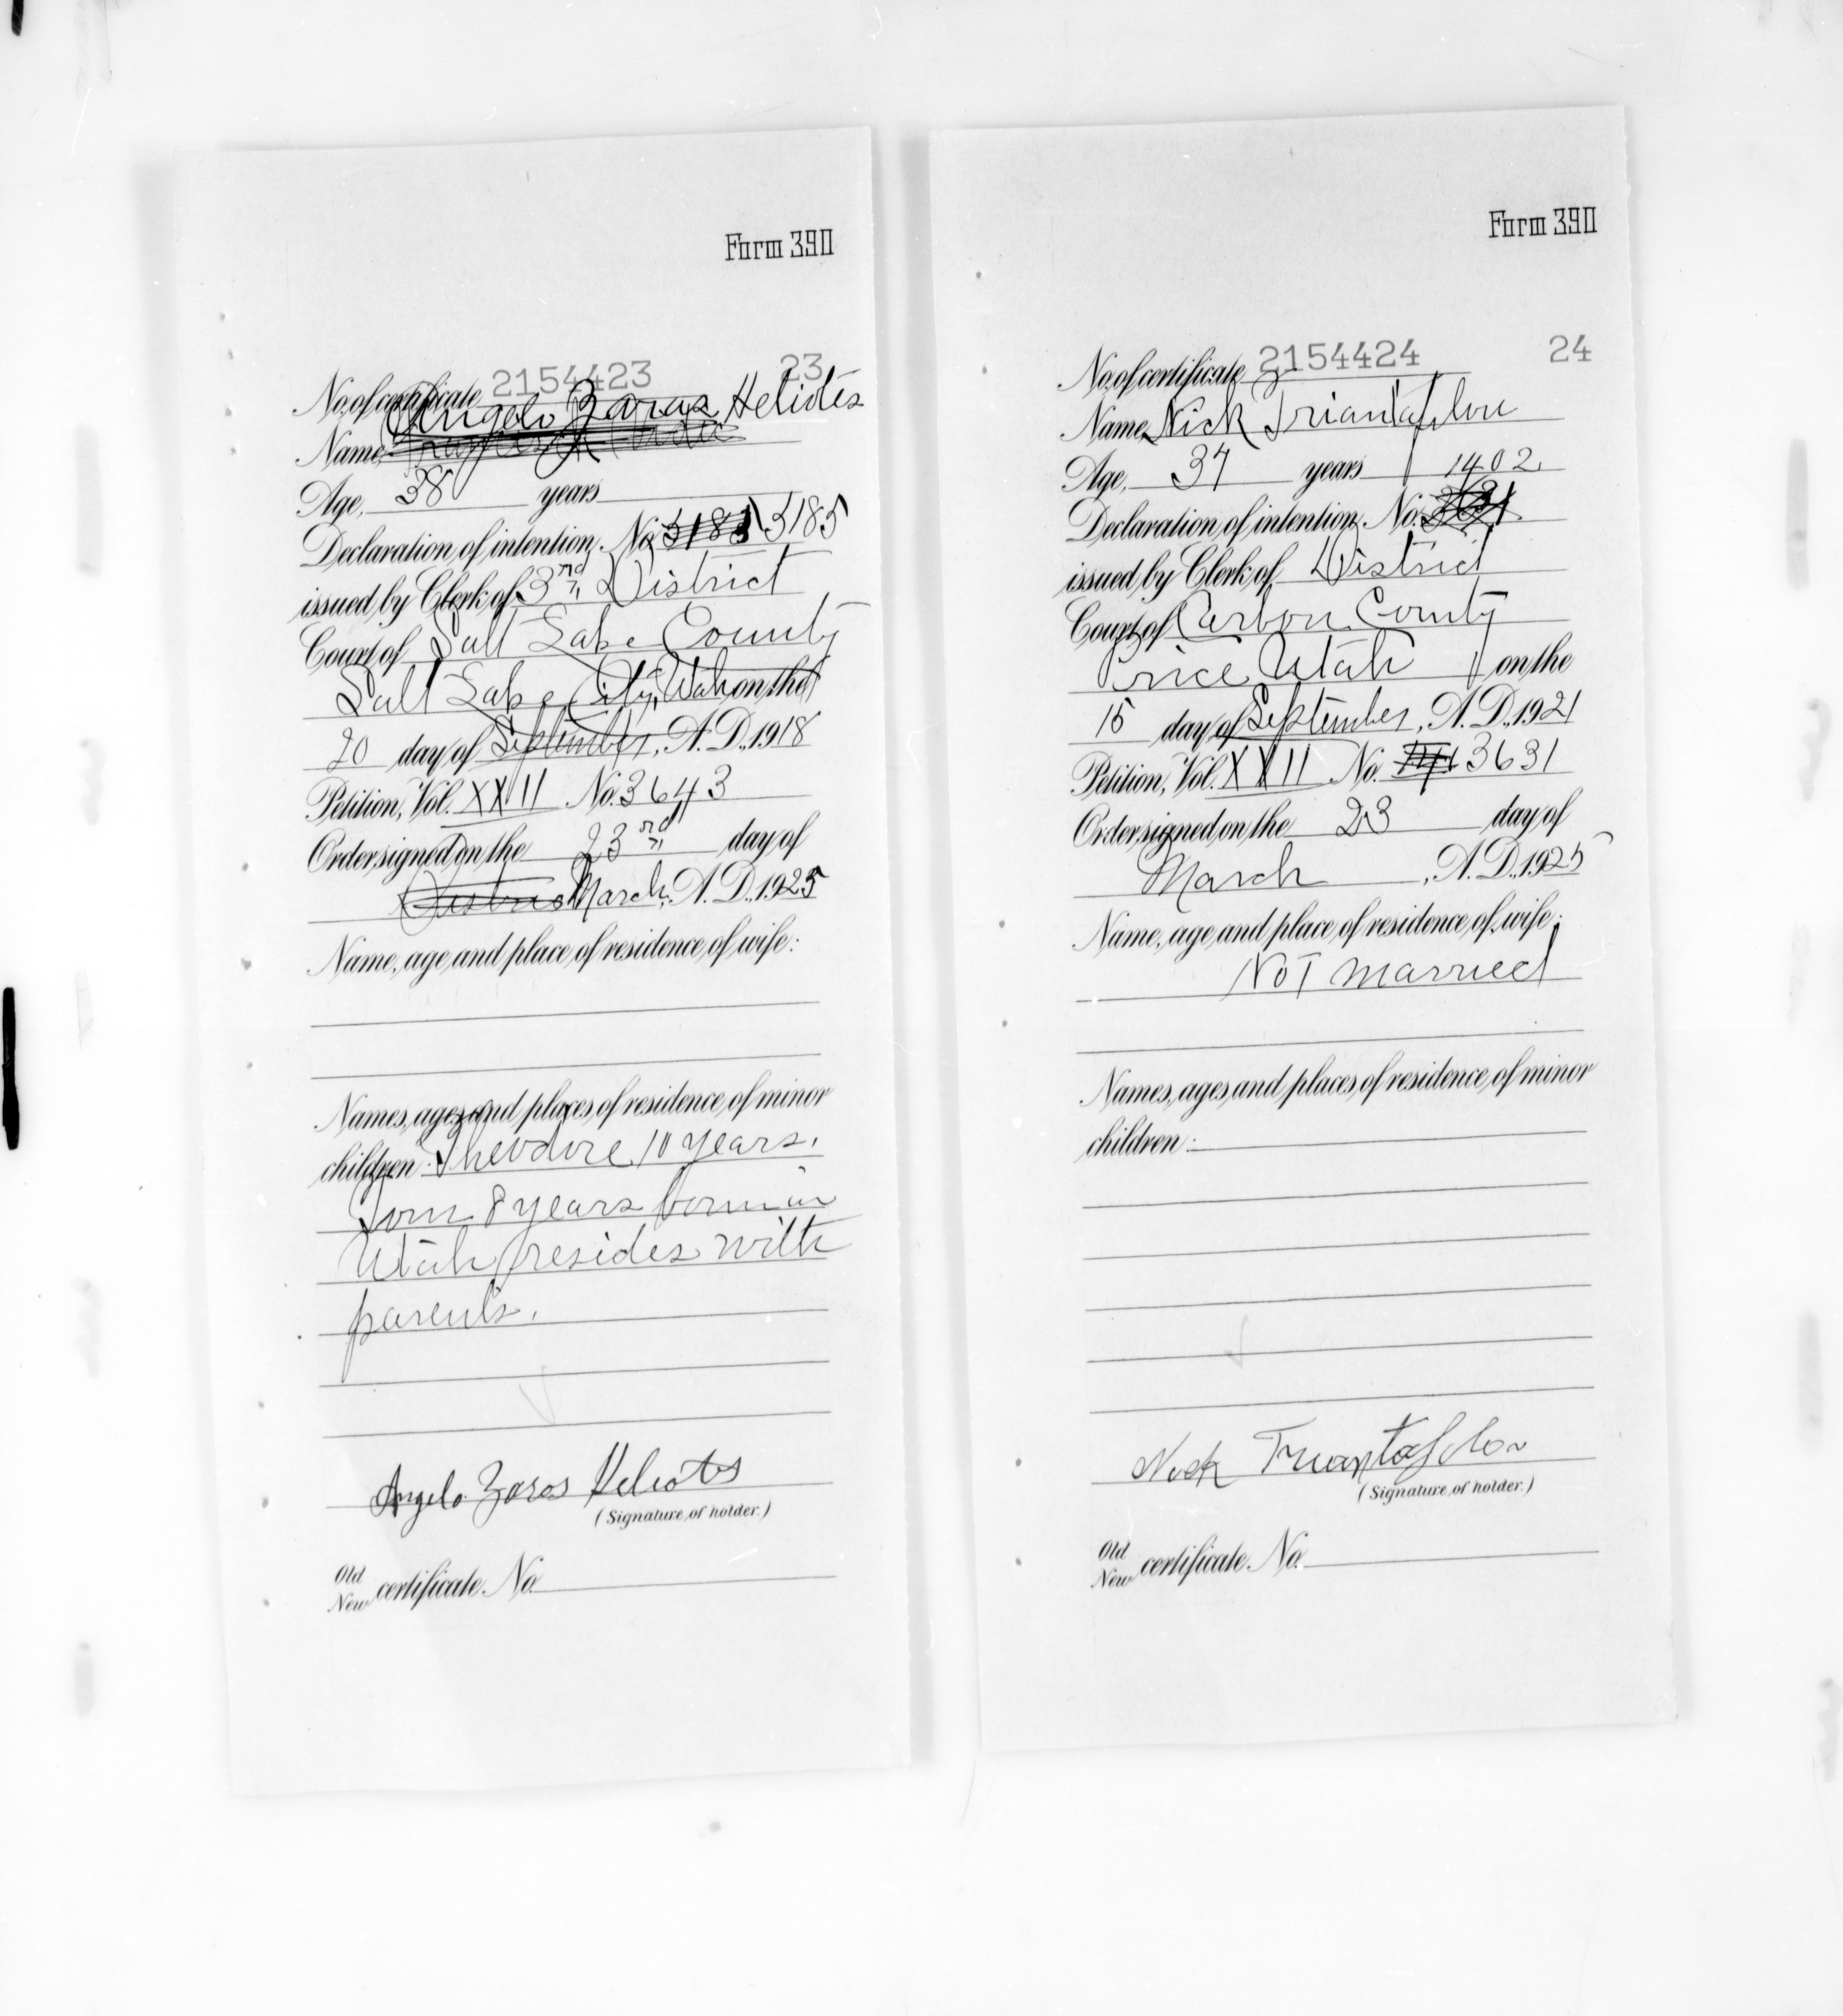 Form 390
No. of certificate 2154423 23
Angelo Zaras Heliotes
Name,
Age, 38 years
Declaration of intention, No. 5185 5185
issued by Clerk of 3rd District
Court of Salt Lake County
Salt Lake City, Utah on the
20 day of September, A.D., 1918
Petition, Vol. XXII No. 3643
Order signed on the 23rd day of
District March, A.D., 1925
Name, age and place of residence of wife:
Names, ages and places of residence of minor
children: Theodore 10 years,
Tom 8 years born in
Utah resides with
parents.
Angelo Zaros Heliotes
(Signature of holder.)
Old
New certificate No.
Form 390
No. of certificate 2154424 24
Name, Nick Triantafilou
Age, 37 years 1402
Declaration of intention, No.
issued by Clerk of District
Court of Carbon County
Price Utah on the
15 day of September, A.D., 1921
Petition, Vol. XXII No. 3631
Order signed on the 23 day of
March, A.D., 1925
Name, age and place of residence of wife:
Not married
Names, ages and places of residence of minor
children:
Nick Triantafilou
(Signature of holder.)
Old
New certificate No.